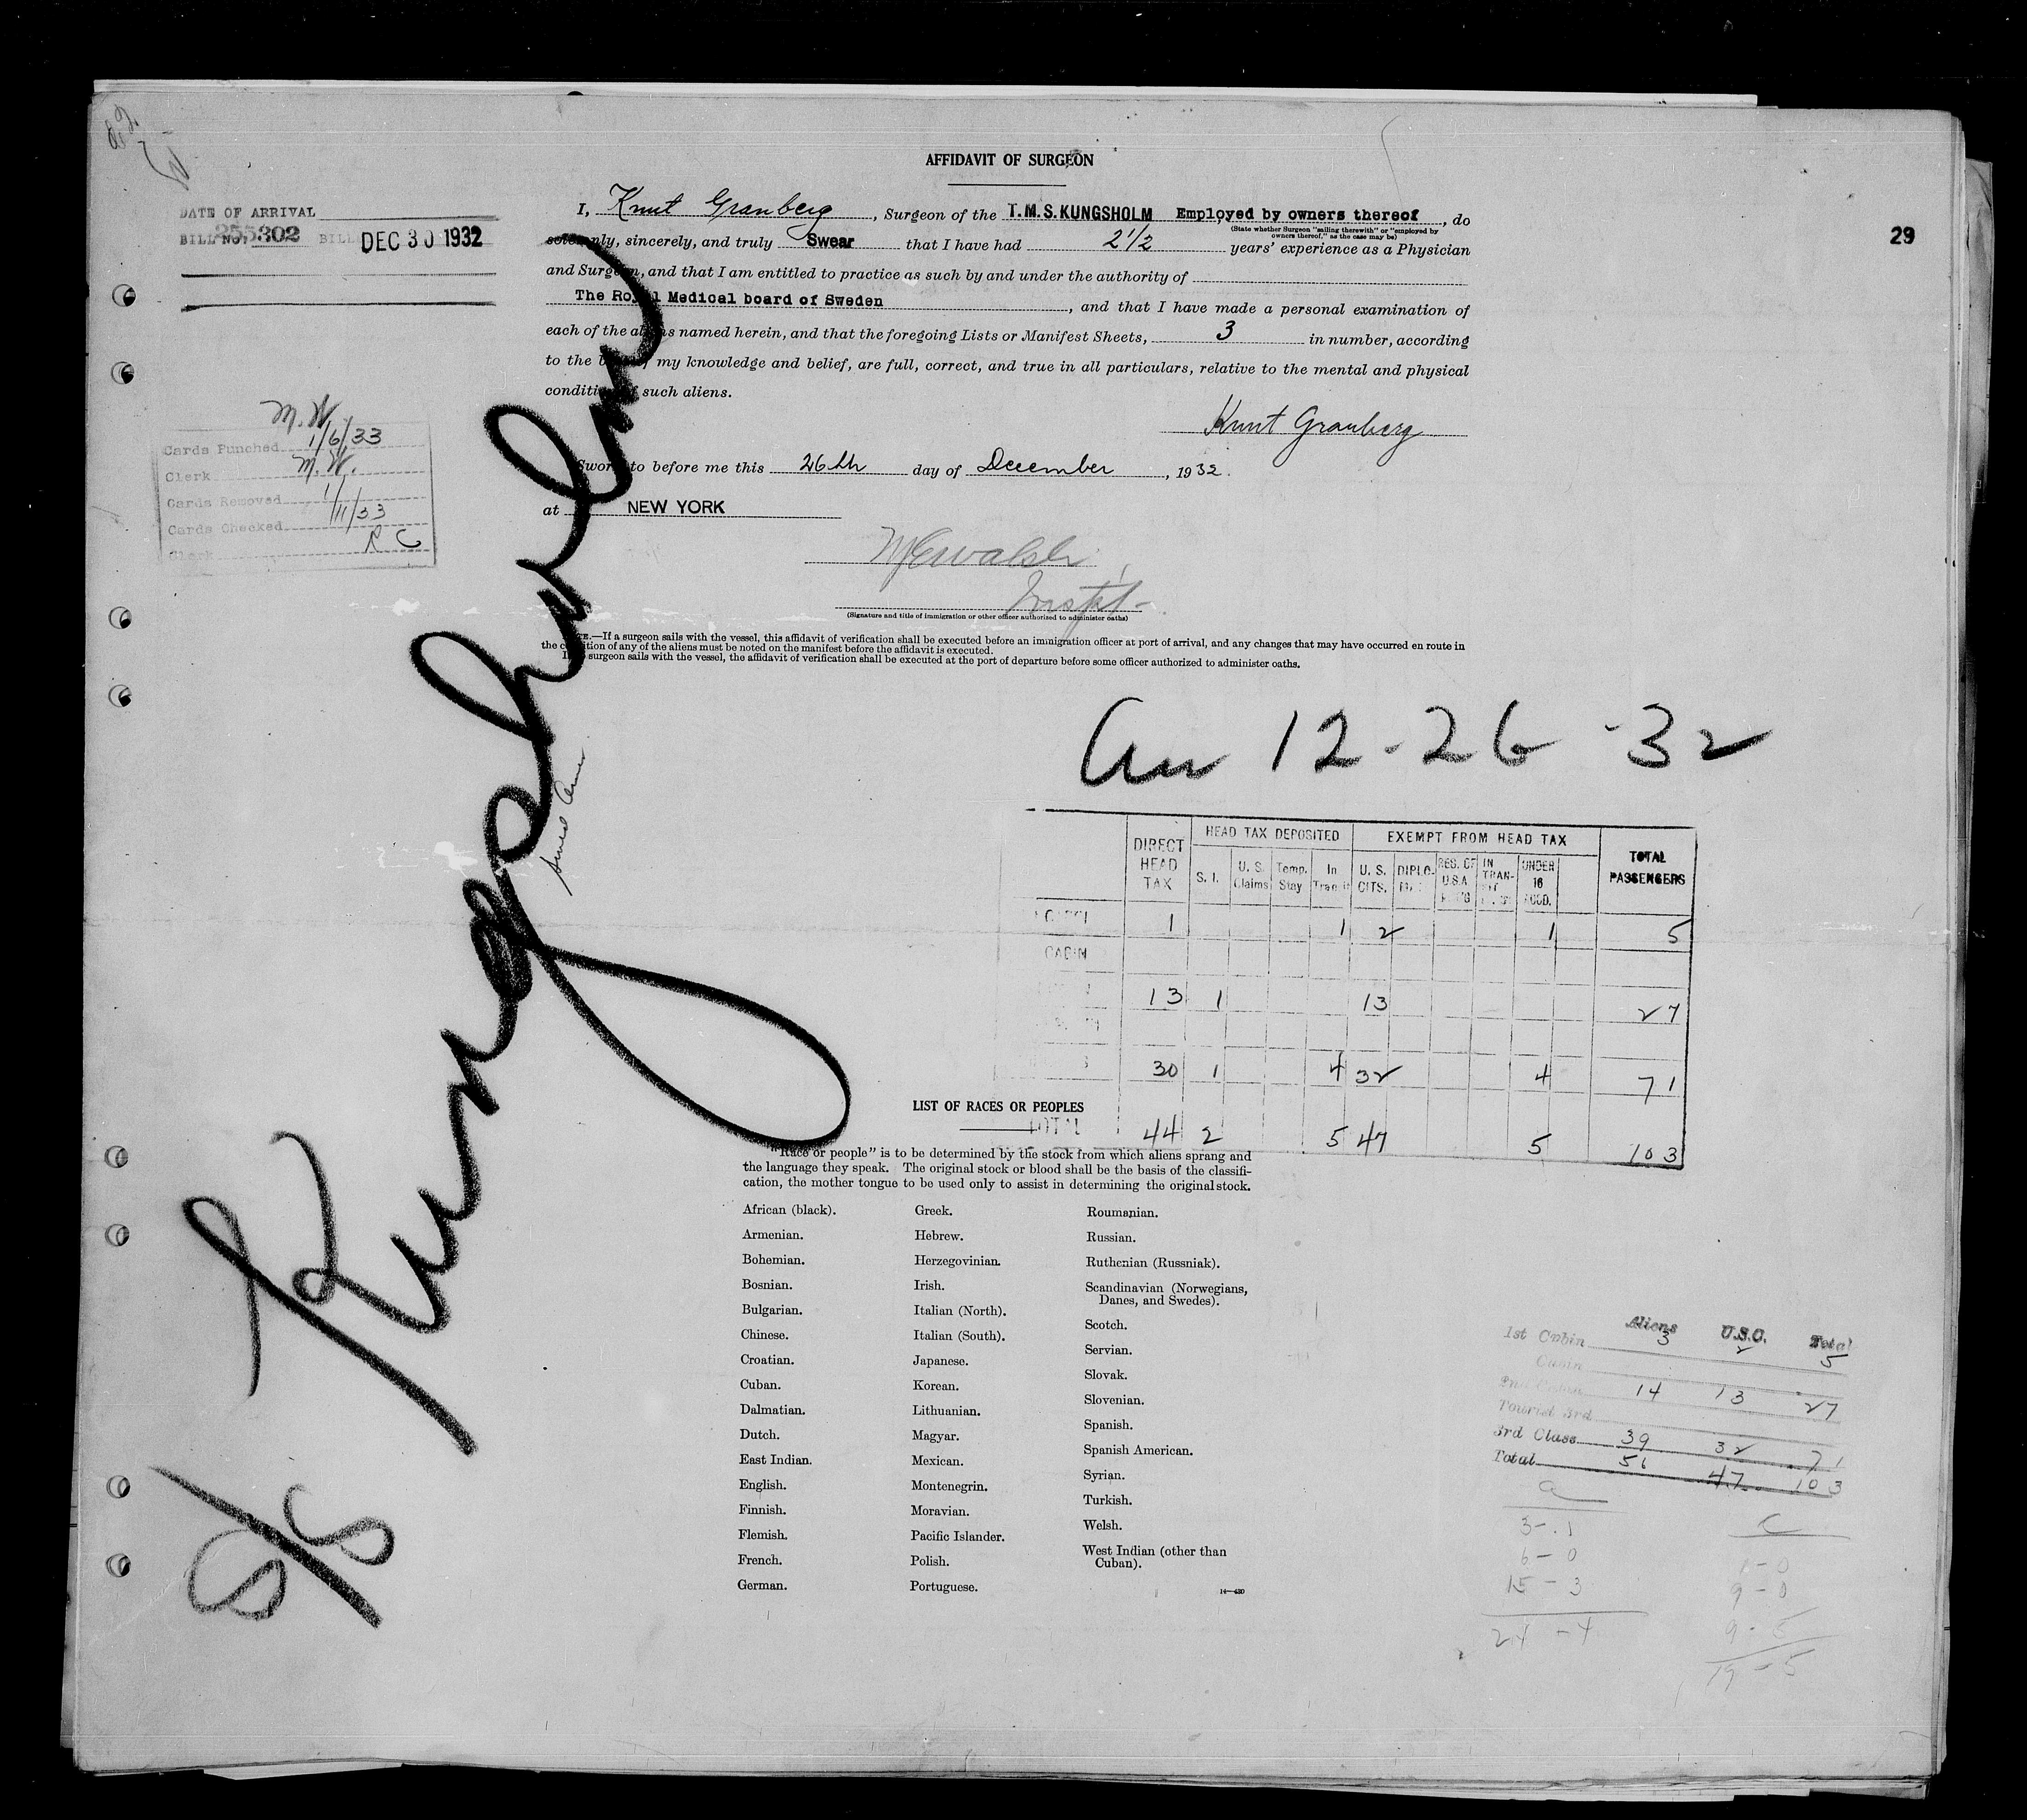 AFFIDAVIT OF SURGEON
29
DATE OF ARRIVAL
BILL NO. 255302 BILL DEC 30 1932
I, Knut Granberg, Surgeon of the T.M.S. KUNGSHOLM Employed by owners thereof, do
(State whether Surgeon "sailing therewith" or "employed by
owners thereof," as the case may be)
solemnly, sincerely, and truly Swear that I have had 2 1/2 years' experience as a Physician
and Surgeon, and that I am entitled to practice as such by and under the authority of
The Royal Medical board of Sweden, and that I have made a personal examination of
each of the aliens named herein, and that the foregoing Lists or Manifest Sheets, 3 in number, according
to the best of my knowledge and belief, are full, correct, and true in all particulars, relative to the mental and physical
condition of such aliens.
Knut Granberg
Sworn to before me this 26th day of December, 1932.
at NEW YORK
(Signature and title of immigration or other officer authorized to administer oaths)
M.W.
Cards Punched 1/6/33
Clerk M.W.
Cards Removed
Cards Checked 1/11/33
Clerk R C
NOTE.—If a surgeon sails with the vessel, this affidavit of verification shall be executed before an immigration officer at port of arrival, and any changes that may have occurred en route in
the condition of any of the aliens must be noted on the manifest before the affidavit is executed.
surgeon sails with the vessel, the affidavit of verification shall be executed at the port of departure before some officer authorized to administer oaths.
S/S Kungsholm
Swed Amer
Arr 12-26-32
DIRECT HEAD TAX HEAD TAX DEPOSITED EXEMPT FROM HEAD TAX TOTAL PASSENGERS
S. I. U. S. Claims Temp. Stay In Transit U. S. CITS. DIPLO- RES. OF U.S.A IN TRAN- UNDER 16
1 1 2 1 5
CABIN
13 1 13 27
30 1 4 32 4 71
TOTAL 44 2 5 47 5 103
LIST OF RACES OR PEOPLES
"Race or people" is to be determined by the stock from which aliens sprang and
the language they speak. The original stock or blood shall be the basis of the classifi-
cation, the mother tongue to be used only to assist in determining the original stock.
African (black).
Armenian.
Bohemian.
Bosnian.
Bulgarian.
Chinese.
Croatian.
Cuban.
Dalmatian.
Dutch.
East Indian.
English.
Finnish.
Flemish.
French.
German.
Greek.
Hebrew.
Herzegovinian.
Irish.
Italian (North).
Italian (South).
Japanese.
Korean.
Lithuanian.
Magyar.
Mexican.
Montenegrin.
Moravian.
Pacific Islander.
Polish.
Portuguese.
Roumanian.
Russian.
Ruthenian (Russniak).
Scandinavian (Norwegians,
Danes, and Swedes).
Scotch.
Servian.
Slovak.
Slovenian.
Spanish.
Spanish American.
Syrian.
Turkish.
Welsh.
West Indian (other than
Cuban).
14—430
Aliens U.S.C. Total
1st Cabin 3 2 5
Cabin
14 13 27
Tourist 3rd
3rd Class 39 32 71
Total 56 47 103
a
3-1
6-0
15-3
24-4
C
1-0
9-0
9-5
19-5